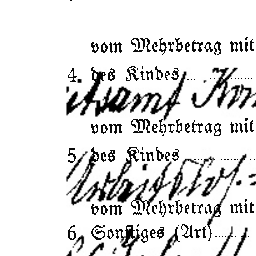 vom Mehrbetrag mit
4. des Kindes
itsamt Kon
vom Mehrbetrag mit
5. des Kindes
Arbeitslos.=
vom Mehrbetrag mit
6. Sonstiges (Art)